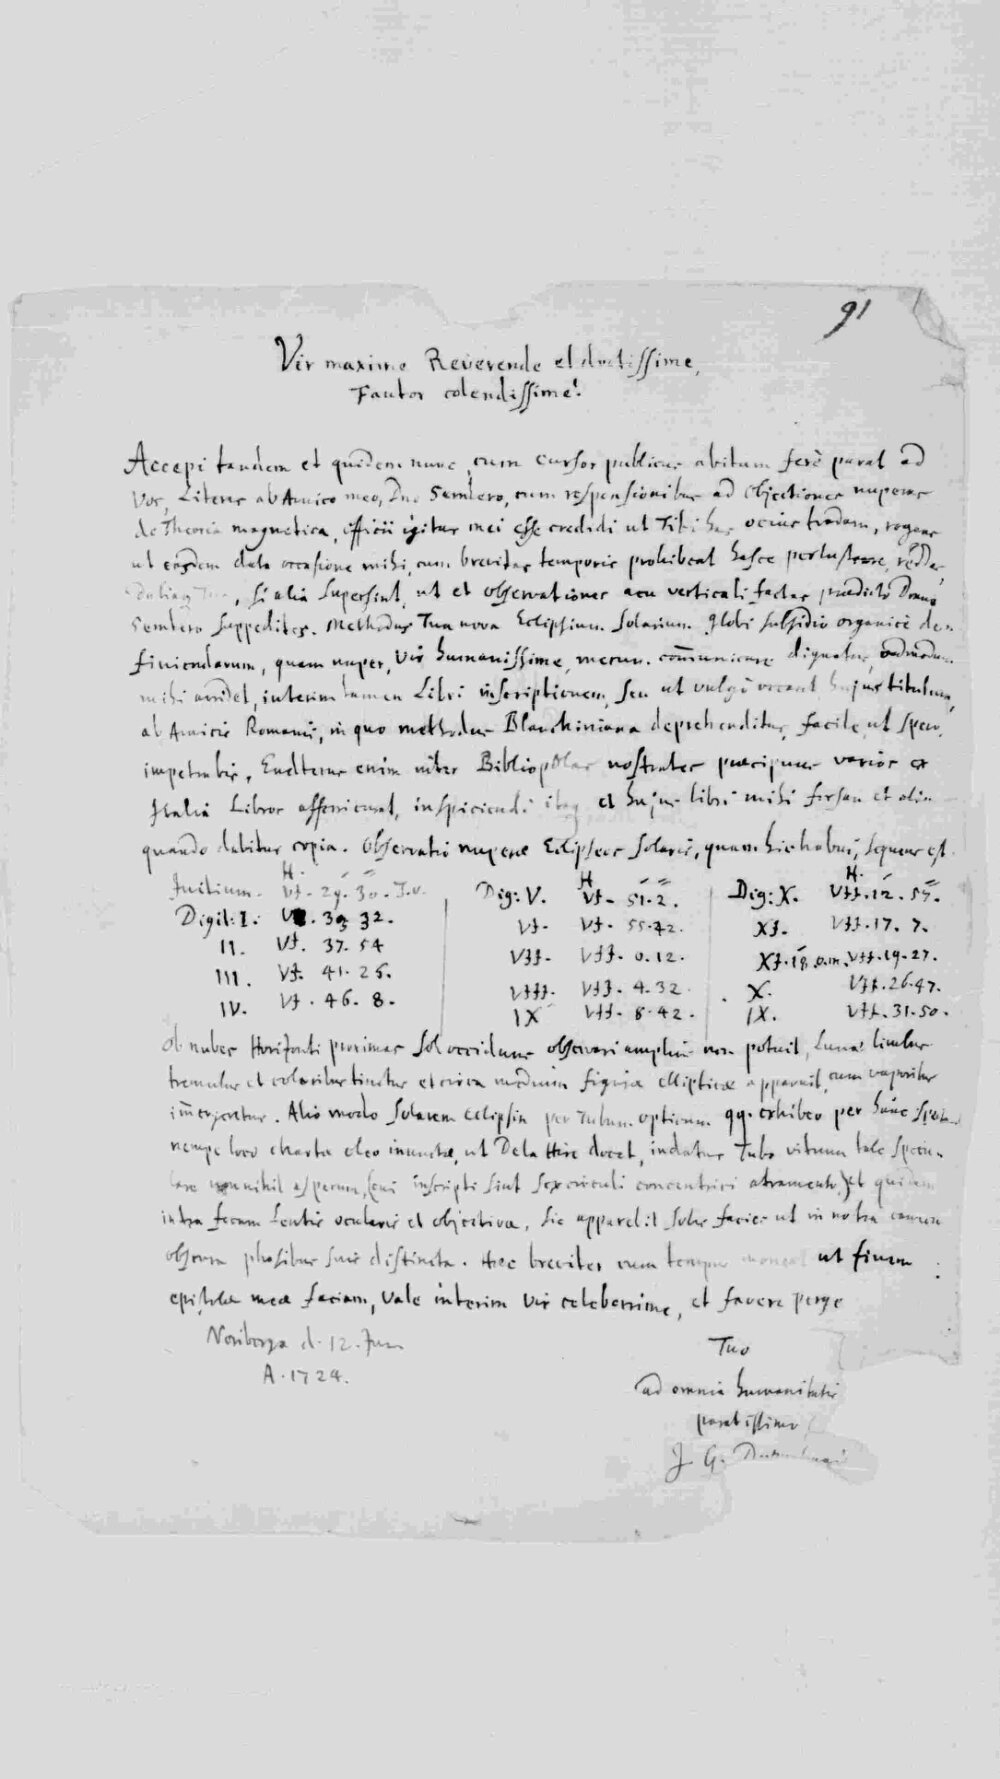 91
Vir maxime Reverende et doctissime,
Fautor colendissime!
Accepi tandem et quidem nunc, cum cursor publicus abitum ferè parat ad
Vos, Literas ab Amico meo, Dno Semlero, cum responsionibus ad objectiones nuperas
de Theoria magnetica, officii igitur mei esse credidi ut Tibi has ocius tradam, rogans
ut easdem data occasione mihi, cum brevitas temporis prohibeat hasce perlustrare, reddas,
, si alia supersint, ut et observationes acu verticali factas praedicto Domno
Semlero suppedites. Methodus Tua nova Eclipsium Solarium globi subsidio organicè de-
finiendarum, quam nuper, Vir humanissime, mecum com̄unicare dignatus, admodum
mihi arridet, interim tamen Libri inscriptionem, seu ut vulgò vocant hujus titulum,
ab Amicis Romanis, in quo methodus Blanchiniana deprehenditur, facile, ut spero,
impetrabis, Eudterus enim inter Bibliopolas nostrates praecipuus varios ex
Italia Libros afferri curat, inspiciendi itaq et hujus libri mihi forsan et olim
quando dabitur copia. Observatio nuperae Eclipseos Solaris, quam hic habui, sequens est.
H. H H.
Initium. VI. 29. 30. Dig: V. VI. 51. 2. Dig: X. VII. 12. 55.
Digit: I. 32. VI. VI. 55. 42. XI. VII. 17. 7.
II. VI. 37. 54 VII. VII. 0. 12. XI. 18. VII. 19. 27.
III. VI. 41. 25. VIII. VII. 4. 32. X. VII. 26. 47.
IV. VI. 46. 8. IX VII. 8. 42. IX. VII. 31. 50.
Ob nubes Horizonti proximas Sol occiduus observari amplius non potuit, Lunae limbus
tremulus et coloribus tinctus et circa medium figurae ellipticae apparuit, cum vaporibus
im̄ergeretur. Alio modo Solarem Eclipsin per Tubum opticum qq. exhibeo per hunc
nempe loco chartae oleo inunctae, ut De la Hire docet, indatur Tubo vitrum tale specu-
lare nonnihil asperum, (cui inscripti sint sex circuli concentrici atramento) et quidem
intra focum Lentis ocularis et objectivae, sic apparebit Solis facies ut in nostra camera
obscura phasibus suis distincta. Haec breviter cum tempus moneat ut finem
epistolae meae faciam, Vale interim Vir celeberrime, et favere perge
Noriberga d. 12. Jun.
A. 1724.
Tuo
ad omnia humanitatis
paratissimo
J. G.